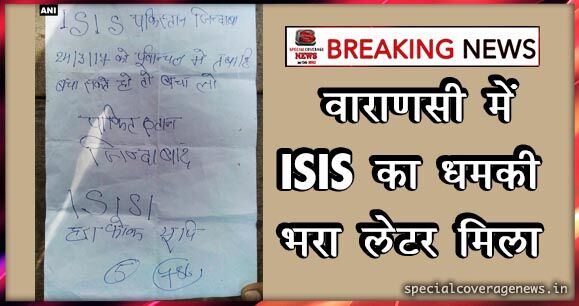 ANI
ISIS पकिस्तान जिन्दाबा
24/3/17 को पुर्वान्चल मे तबाहि
बचा सकते हो तो बचा लो
पाकिस्तान
जिन्दाबाद
ISIS
यूपि
786
SPECIAL COVERAGE
NEWS
BREAKING NEWS
वाराणसी में
ISIS का धमकी
भरा लेटर मिला
specialcoveragenews.in